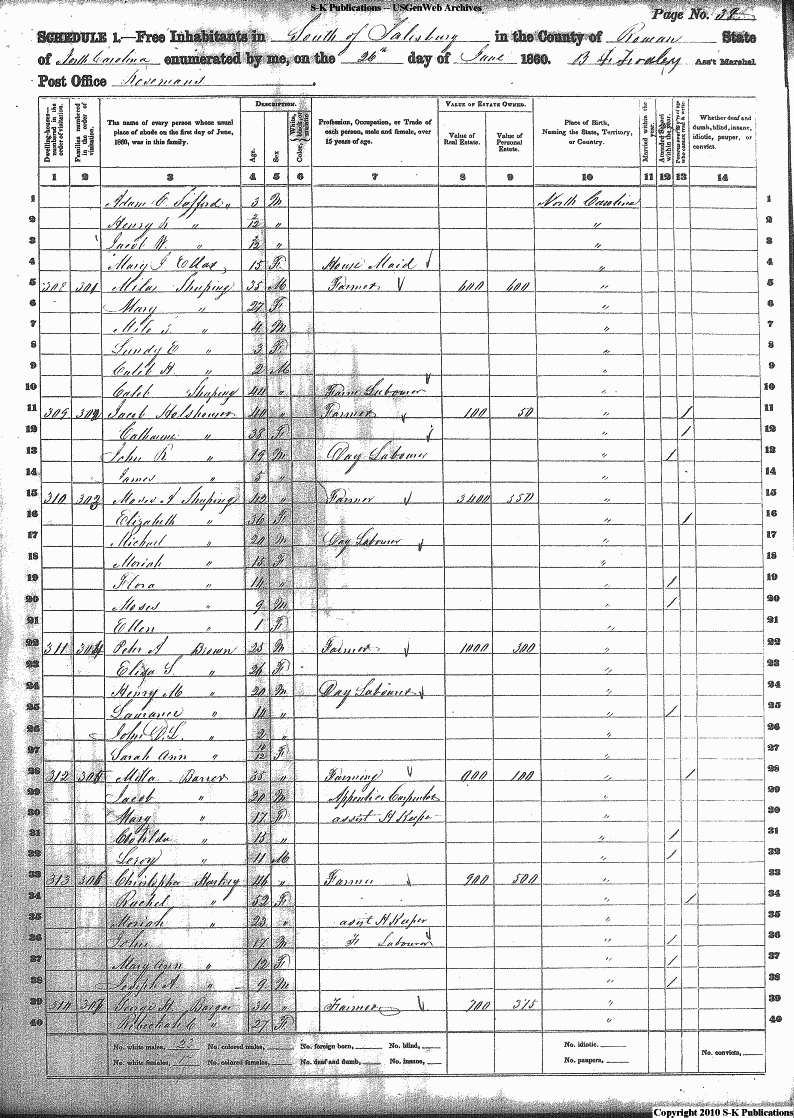 S-K Publications -- USGenWeb Archives
Page No. 38
SCHEDULE 1.—Free Inhabitants in South of Salsburg in the County of Rowan State
of North Carolina enumerated by me, on the 26th day of June 1860. Ass't Marshal
Post Office Rosemans.
Dwelling-houses—numbered in the order of visitation. Families numbered in the order of visitation. The name of every person whose usual place of abode on the first day of June, 1860, was in this family. DESCRIPTION. Age. Sex Color, White, black, or mulatto Profession, Occupation, or Trade of each person, male and female, over 15 years of age. VALUE OF ESTATE OWNED. Value of Real Estate. Value of Personal Estate. Place of Birth, Naming the State, Territory, or Country. Married within the year. Attended School within the year. Whether deaf and dumb, blind, insane, idiotic, pauper, or convict.
1 2 3 4 5 6 7 8 9 10 11 12 13 14
1 Adam C. " 3 M North Carolina 1
2 Henry " 2/12 " " 2
3 Jacob W. " 2/12 " " 3
4 Mary J 15 F House Maid " 4
5 302 301 Milas Shuping 35 M Farmer 600 600 " 5
6 Mary " 27 F " 6
7 " 4 M " 7
8 " 3 F " 8
9 Caleb H. " 2 M " 9
10 Caleb Shuping 44 " Farm Labourer " 10
11 309 302 Jacob Holshouser 40 " Farmer 100 50 " / 11
12 Catharine " 38 F " / 12
13 John R " 19 M Day Labourer " / 13
14 James " 5 " " 14
15 310 303 Moses A Shuping 42 " Farmer 3400 350 " 15
16 Elizabeth " 36 F " / 16
17 Michael " 20 M Day Labourer " 17
18 Moriah " 15 F " 18
19 Flora " 14 " " / 19
20 Moses " 9 M " / 20
21 Ellen " 1 F " 21
22 311 304 Peter A Brown 25 M Farmer 1000 300 " 22
23 Eliza S. " 26 F " 23
24 Henry M " 20 M Day Labourer " 24
25 " 14 " " / 25
26 John D. L. " 2 " " 26
27 Sarah Ann " F " 27
28 312 305 Milla 35 " Farming 000 100 " / 28
29 Jacob " 20 M Apprentice Carpenter 29
30 Mary " 17 F assist H Keeper 30
31 Clotilda " 13 " " / 31
32 Leroy " 11 M " / 32
33 313 306 Christopher " Farmer 900 500 " 33
34 Rachel " 52 F / 34
35 Moriah " 23 " assist H Keeper 35
36 John " 17 M F Labourer " / 36
37 Mary Ann " 12 F " / 37
38 Joseph A " 9 M " / 38
39 314 307 George H. Barger 34 " Farmer 700 375 " 39
40 " 27 F " 40
No. white males, No. colored males, No. foreign born, No. blind, No. idiotic, No. convicts,
No. white females, No. colored females, No. deaf and dumb, No. insane, No. paupers,
Copyright 2010 S-K Publications